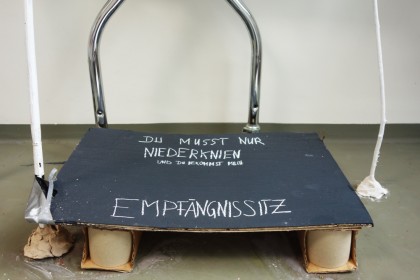 DU MUSST NUR
NIEDERKNIEN
UND DU BEKOMMST
EMPFÄNGNISSITZ